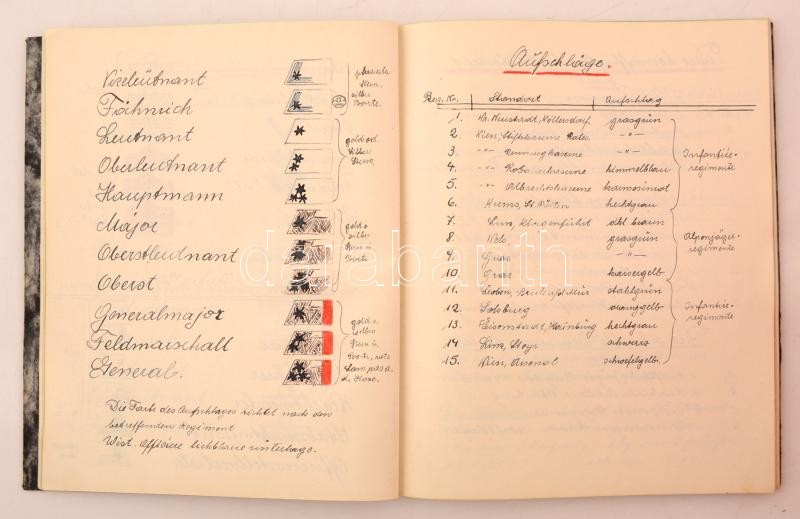 Vizeleutnant
Fähnrich
Leutnant
Oberleutnant
Hauptmann
Major
Oberstleutnant
Oberst
Generalmajor
Feldmarschall
General.
silber
Borte.
gold od.
silber
gold o.
silber
Borte
gold o.
silber
Borte, rote
Lampass a.
d. Hose.
Die Farbe des Aufschlages richtet nach den
betreffenden Regiment
Wist. Officiere lichtblaue unterlage.
Aufschläge.
Reg. Nr. Standort Aufschlag
1. Wr. Neustadt, Wöllersdorf grasgrün
2. Wien, Stiftskaserne -"-
3. -"- Rennwegkaserne -"-
4. -"- Kobanekaserne himmelblau
5. -"- Albrechtskaserne karmosinrot
6. Krems, St. Pölten hechtgrau
7. Linz, Klagenfurt dkl. braun
8. Wels, grasgrün
9. Graz -"-
10. Graz kaisergelb
11. Leoben, stahlgrün
12. Salzburg orangegelb
13. Eisenstadt, Hainburg hechtgrau
14 Linz, Steyr schwarz
15. Wien, Arsenal schwefelgelb.
Infantrie-
regimente
Alpenjäger-
regimente
Infantrie-
regimente
darabanth